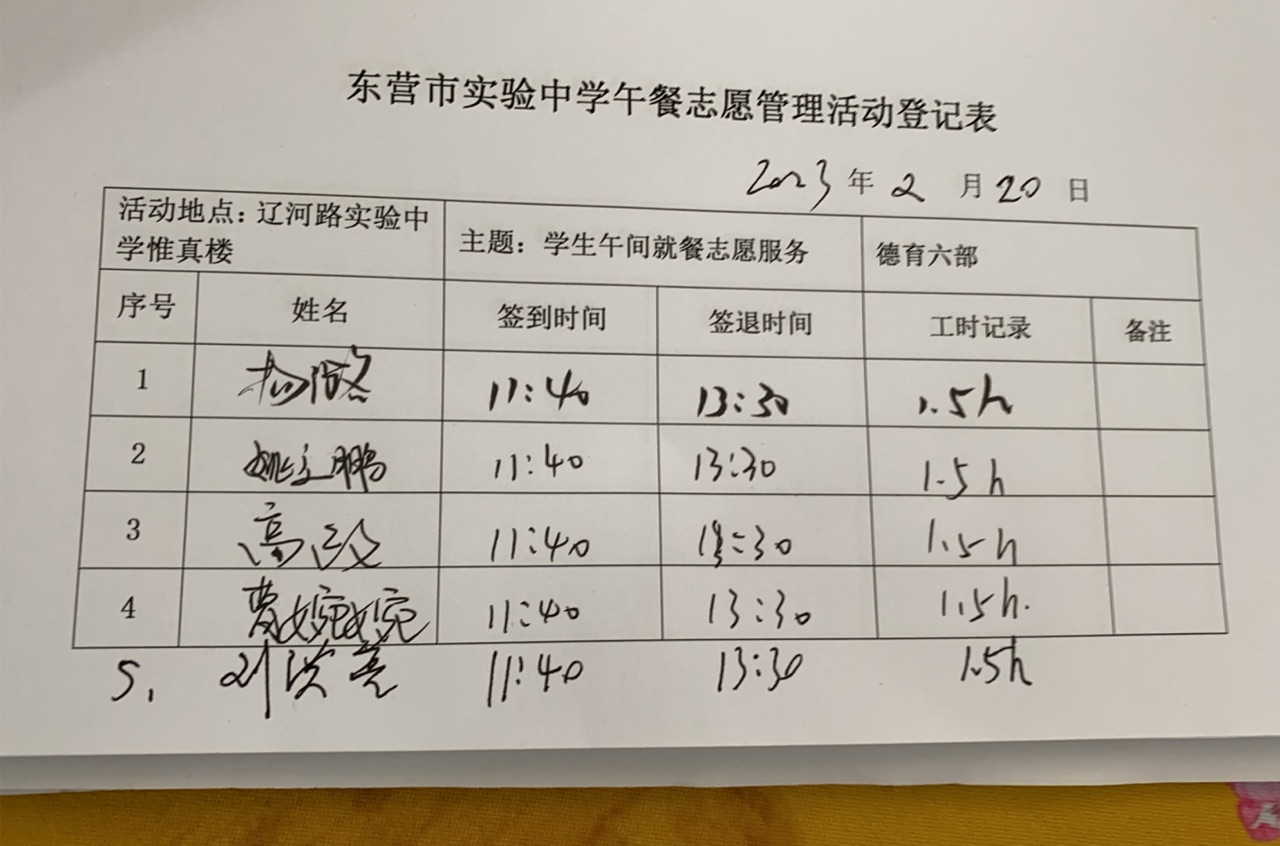 东营市实验中学午餐志愿管理活动登记表
2023年2月20日
活动地点:辽河路实验中
学惟真楼
主题:学生午间就餐志愿服务
德育六部
序号 姓名 签到时间 签退时间 工时记录 备注
1 11:40 13:30 1.5h
2 姚立鹏 11:40 13:30 1.5h
3 高政 11:40 13:30 1.5h
4 曹婉婉 11:40 13:30 1.5h.
5. 刘洪亮 11:40 13:30 1.5h